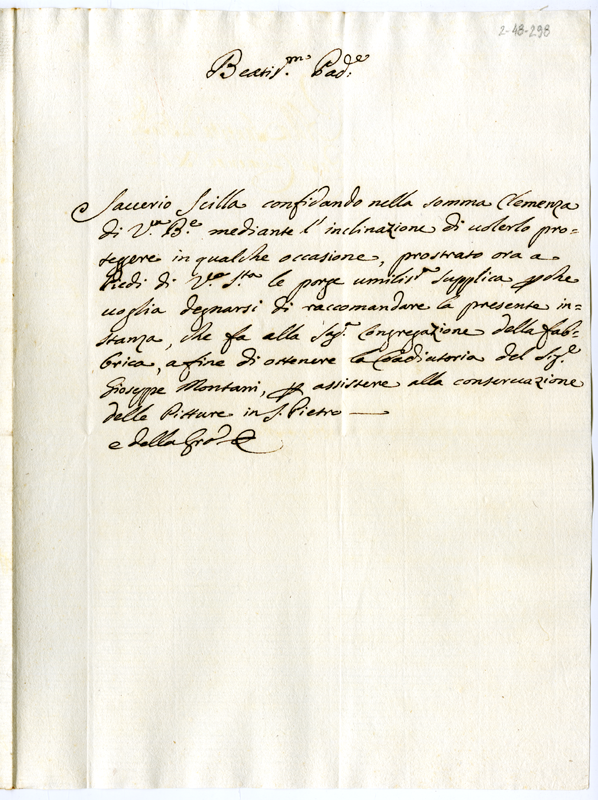 2-48-298
Beatis.mo Pad.e
Saverio Scilla confidando nella somma Clemenza
di V.ra B.e mediante l'inclinazione di volerlo pro=
tegere in qualche occasione, prostrato ora a
Piedi di V.ra S.tà le porge umilis.a supplica, perche
voglia degnarsi di raccomandare la presente in=
stanza, che fa alla Sag.a Congregazione della fab=
brica, a fine di ottenere la Coadiutoria del Sig.e
Gioseppe Montani, per assistere alla conservazione
delle Pitture in S. Pietro
e della Gra.